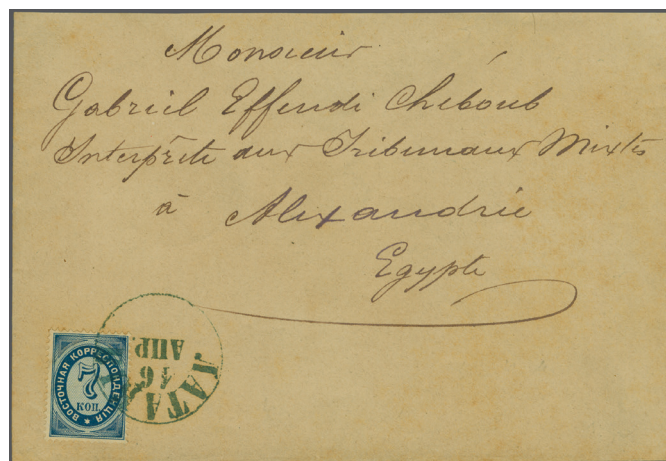 Monsieur
Gabriel Effendi Cheboub
Interprète aux Tribunaux Mixtes
à Alexandrie
Egypte
ВОСТОЧНАЯ КОРРЕСПОНДЕНЦІЯ
7
КОП
16
АПР.